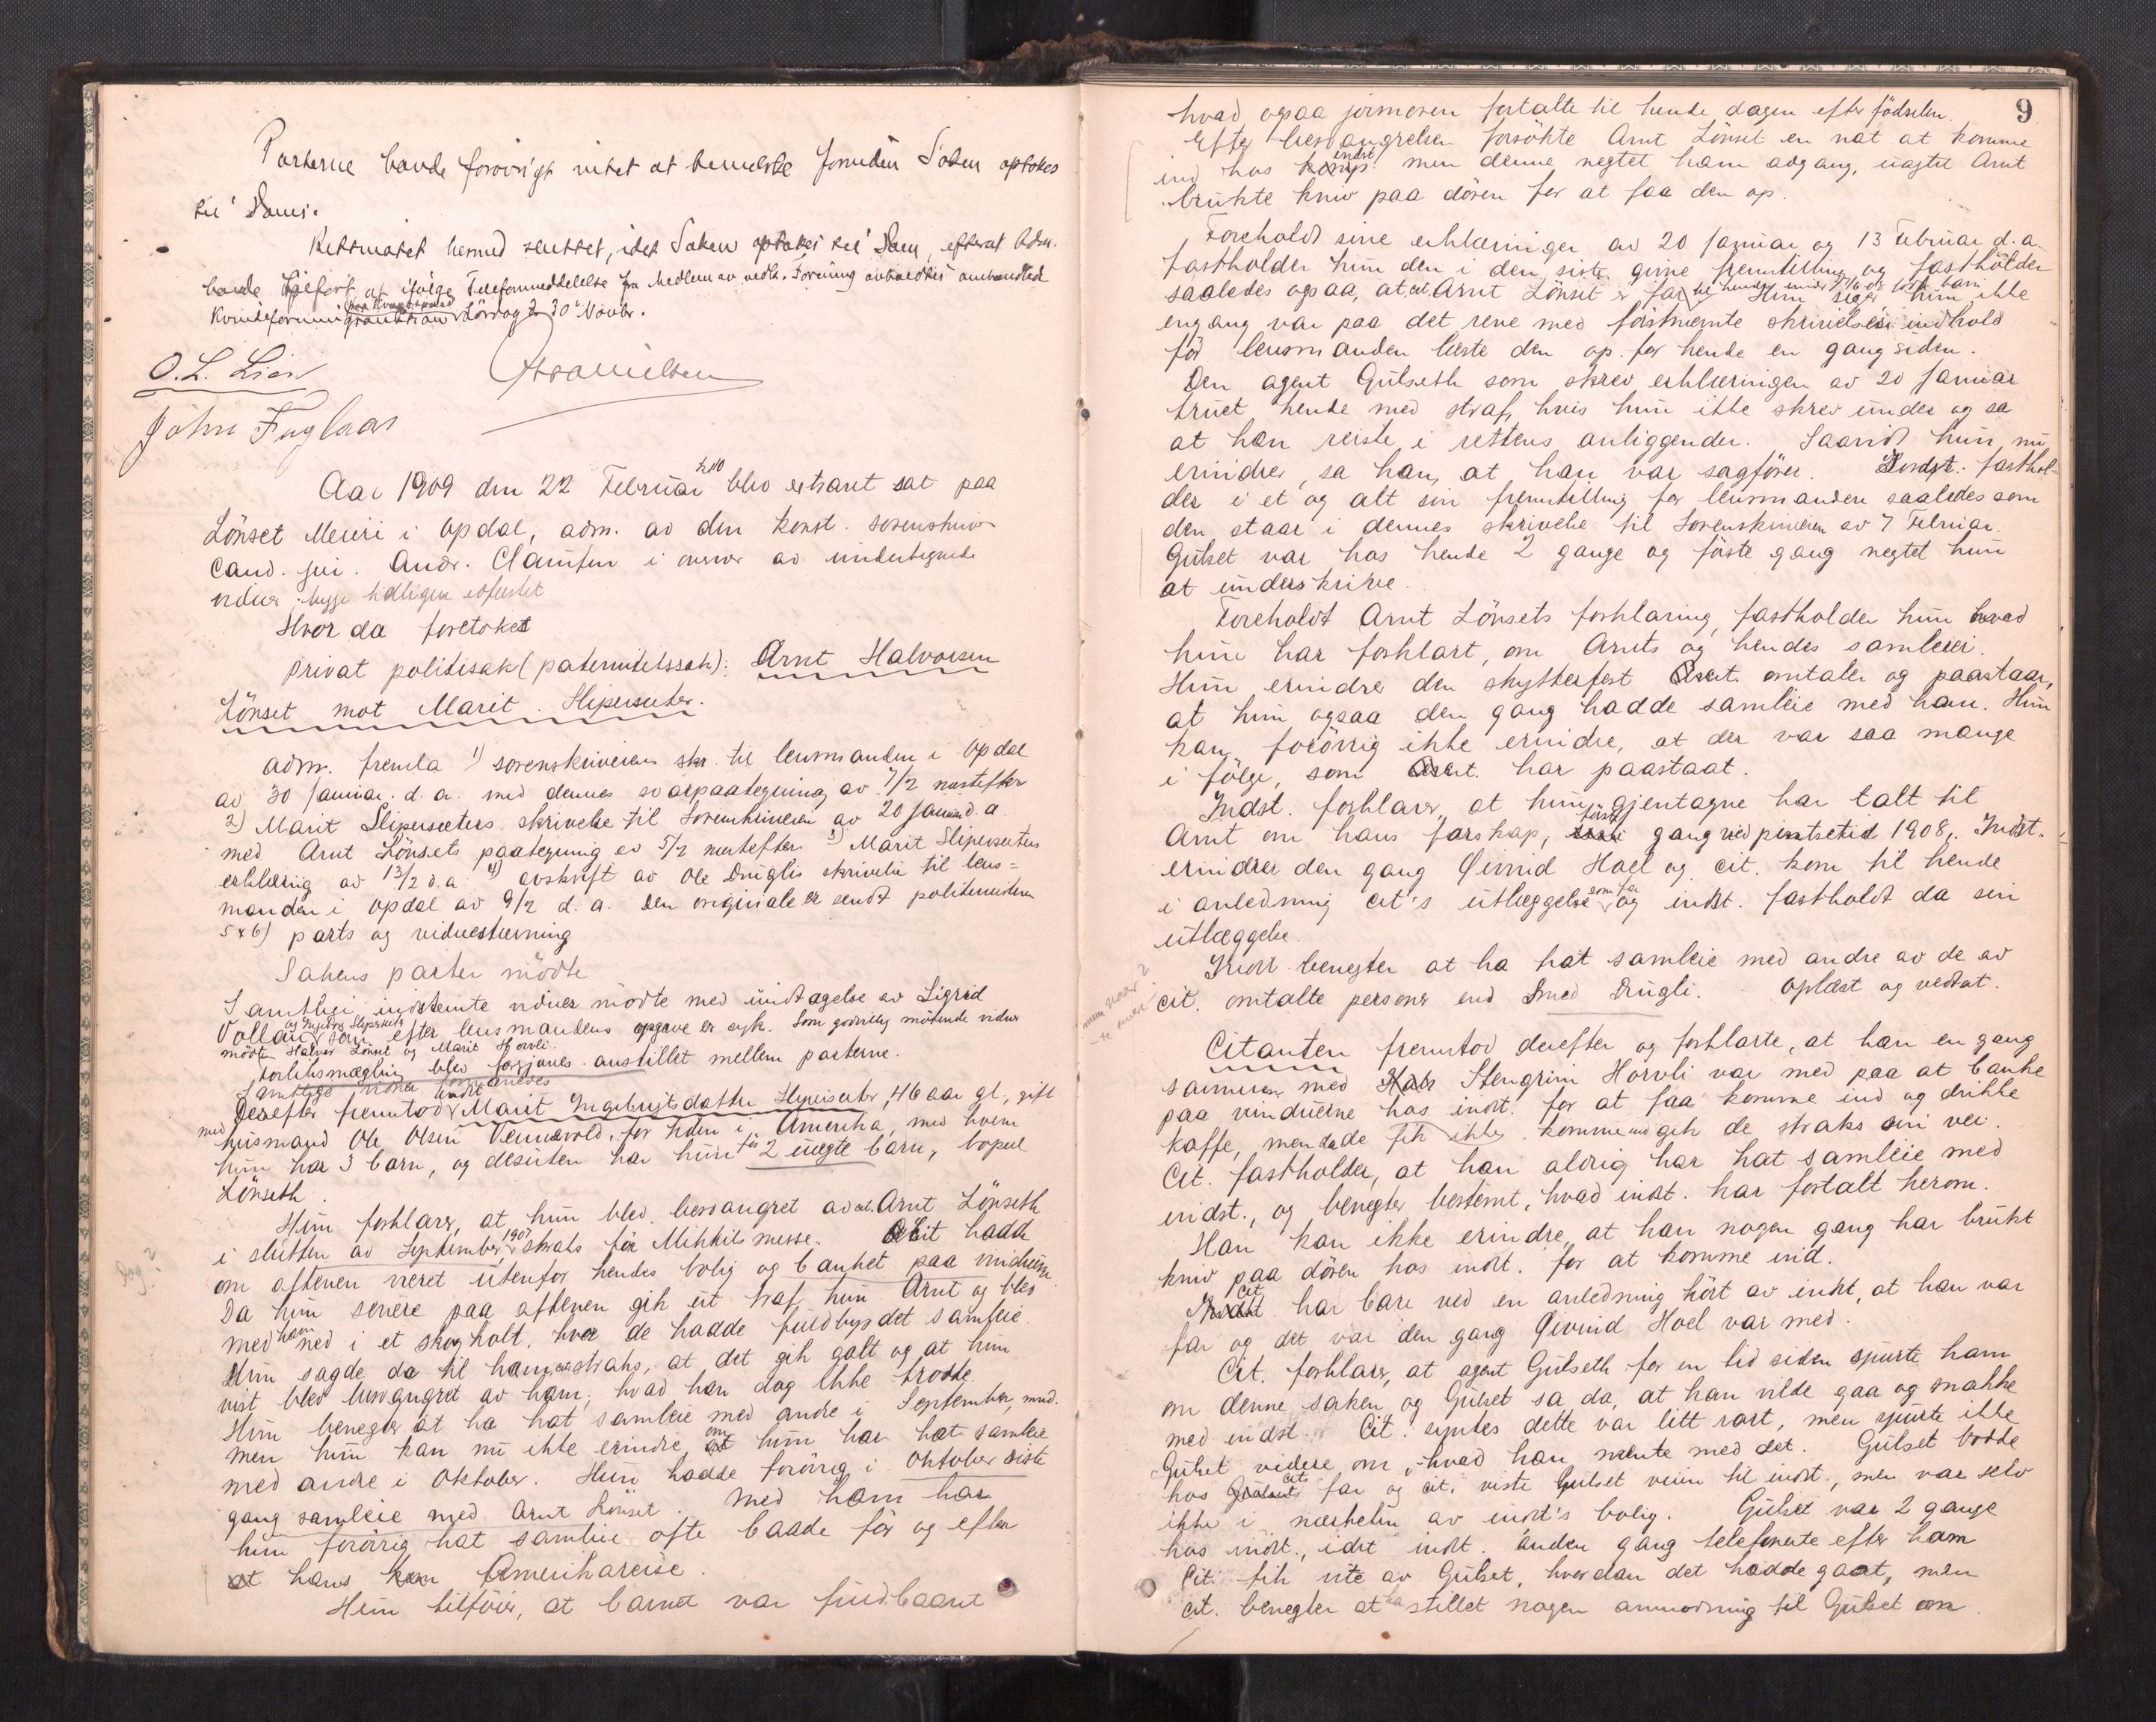 Parterne havde forøvrigt intet at bemerke forinden Saken optokes
til Doms.
Retsmøtet hermed sluttet, idet Saken optokes til Dom, efterat Adm.
havde tilført at ifølge Telefonmeddelelse fra Medlem av vedk. Forening
Kvindeforening Lördag 30 Novbr.
O. L. Lien
John Fuglaas
Aar 1909 den 22 Februar k 10 blev extraret sat paa
Lönset Meieri i Opdal, adm. av den konst. sorenskriver
Cand. jur. Andr. Claussen i overvær av undertegnede
vidner begge tidligere edfæstet
Hvor da foretokes
privat politisak (paternitetssak): Arnt Halvorsen
Lönset mot Marit Slipersæter.
adm. fremla 1) sorenskriverens skr. til lensmanden i Opdal
av 30 Januar d. a. med dennes svarpaategning av 7/2 næstefter
2) Marit Slipersæters skrivelse til Sorenskriveren av 20 Januar d. a
med Arnt Lönsets paategning av 5/2 næstefter 3) Marit Slipersæters
erklæring av 13/2 d. a. 4) avskrift av Ole Druglis skrivelse til lens-
manden i Opdal av 9/2 d. a. Den originale er sendt politimesteren
5 & 6) parts og vidnestævning
Sakens parter mödte
Samtlige indstevnte vidner mödte med undtagelse av Sigrid
Vollan og Ingeborg Slipersæter som efter lensmandens opgave er syk. Som godvillig mötende vidner
mödte Halvor Lönset og Marit Horvli.
Forliksmægling blev forgjæves anstillet mellem parterne.
Samtlige vidner formanedes
Derefter fremstod indst. Marit Ingebrigtsdatter Slipersæter, 46 aar gl., gift
med husmand Ole Olsen Vennevold, for tiden i Amerika, med hvem
hun har 3 barn, og desuten har hun før 2 uegte barn, bopæl
Lönseth.
Hun forklarer, at hun blev besvangret av cit. Arnt Lönseth
i slutten av September 1907 straks för Mikkelsmesse. Cit hadde
om aftenen været utenfor hendes bolig og banket paa vinduene.
Da hun senere paa aftenen gik ut traf hun Arnt og blev
med ham ned i et skogholt, hvor de hadde fuldbyrdet samleie.
Hun sagde da til ham straks, at det gik galt og at hun
vist blev besvangret av ham, hvad han dog ikke trodde.
Hun benegter at ha hat samleie med andre i September, mnd.
men hun kan nu ikke erindre, om hun har hat samleie
med andre i Oktober. Hun hadde forövrig i Oktober siste
gang samleie med Arnt Lönset. Med ham har
hun forövrig hat samleie ofte baade för og efter
hans Amerikareise.
Hun tilföier, at barnet var fuldbaaret
Dog?
9
hvad ogsaa jormoren fortalte til hende dagen efter födselen.
Efter besvangrelsen forsökte Arnt Lönset en nat at komme
ind hos indst. men denne negtet ham adgang, uagtet Arnt
brukte kniv paa dören for at faa den op.
Foreholdt sine erklæringer av 20 Januar og 13 Februar d. a.
fastholder hun den i den siste givne fremstilling, og fastholder
saaledes ogsaa, at cit. Arnt Lönset er far til hendes barn. Hun siger hun ikke
engang var paa det rene med förstnævnte skrivelses indhold
för lensmanden læste den op for hende en gang siden.
Den agent Gulseth som skrev erklæringen av 20 Januar
truet hende med straf, hvis hun ikke skrev under og sa
at han reiste i rettens anliggender. Saavidt hun nu
erindrer, sa han, at han var sagförer. Indst. fasthol-
der i et og alt sin fremstilling for lensmanden saaledes som
den staar i dennes skrivelse til Sorenskriveren av 7 Februar.
Gulset var hos hende 2 gange og förste gang negtet hun
at underskrive.
Foreholdt Arnt Lönsets forklaring, fastholder hun hvad
hun har forklart, om Arnts og hendes samleie.
Hun erindrer den skytterfest Cit. omtaler og paastaar,
at hun ogsaa den gang hadde samleie med ham. Hun
kan forövrig ikke erindre, at der var saa mange
i fölge, som Cit. har paastaat.
Indst. forklarer, at hun gjentagne har talt til
Arnt om hans farskap, först gang ved pinstetid 1908. Indst.
erindrer den gang Öivind Hoel og cit. kom til hende
i anledning cit's utlæggelse som far og indst. fastholdt da sin
utlæggelse.
Indst. benegter at ha hat samleie med andre av de av
cit. omtalte personer end Smed Drugli. Oplæst og vedtat.
Citanten fremstod derefter og forklarte, at han en gang
sammen med Stengrim Horvli var med paa at banke
paa vinduerne hos indst. for at faa komme ind og drikke
kaffe, men da de fik ikke komme ind gik de straks sin vei.
Cit. fastholder, at han aldrig har hat samleie med
indst., og benegter bestemt, hvad indst. har fortalt herom.
Han kan ikke erindre, at han nogen gang har brukt
kniv paa dören hos indst. for at komme ind.
Cit. har bare ved en anledning hört av indst, at han var
far og det var den gang Öivind Hoel var med.
Cit. forklarer, at agent Gulseth for en tid siden spurte ham
om denne saken og Gulset sa da, at han vilde gaa og snakke
med indst. Cit. syntes dette var litt rart, men spurte ikke
Gulset videre om, hvad han mente med det. Gulset bodde
hos cits far og cit. viste Gulset veien til indst., men var selv
ikke i nærheten av indst's bolig. Gulset var 2 gange
hos indst., idet indst. anden gang telefonerte efter ham
Cit. fik vite av Gulset, hvordan det hadde gaat, men
cit. benegter at ha stillet nogen anmodning til Gulset om